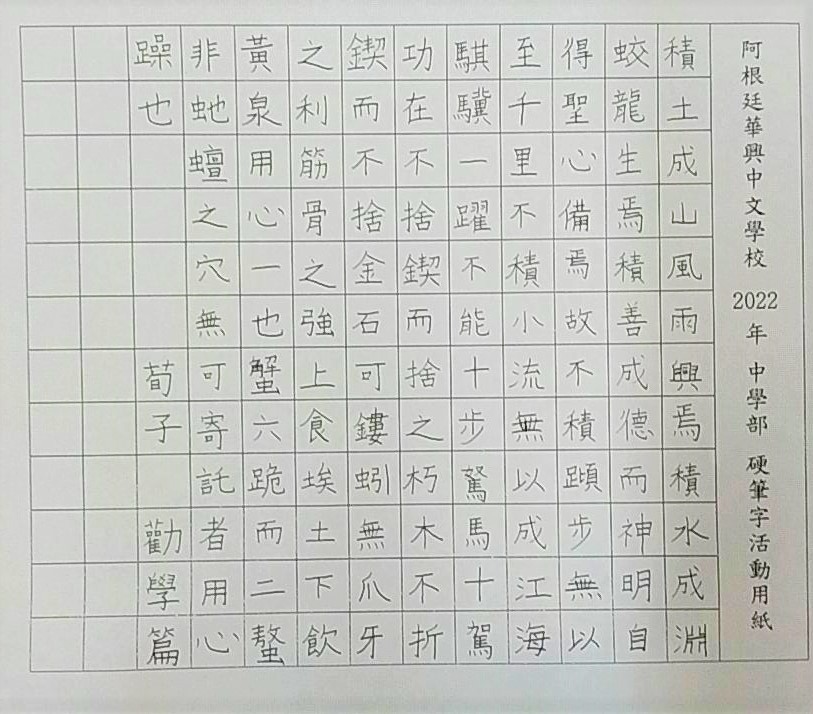 阿根廷華興中文學校 2022 年 中學部 硬筆字活動用紙
積土成山風雨興焉積水成淵
蛟龍生焉積善成德而神明自
得聖心備焉故不積蹞步無以
至千里不積小流無以成江海
騏驥一躍不能十步駑馬十駕
功在不捨鍥而捨之朽木不折
鍥而不捨金石可鏤蚓無爪牙
之利筋骨之強上食埃土下飲
黃泉用心一也蟹六跪而二螯
非虵蟺之穴無可寄託者用心
躁也 荀子 勸學篇